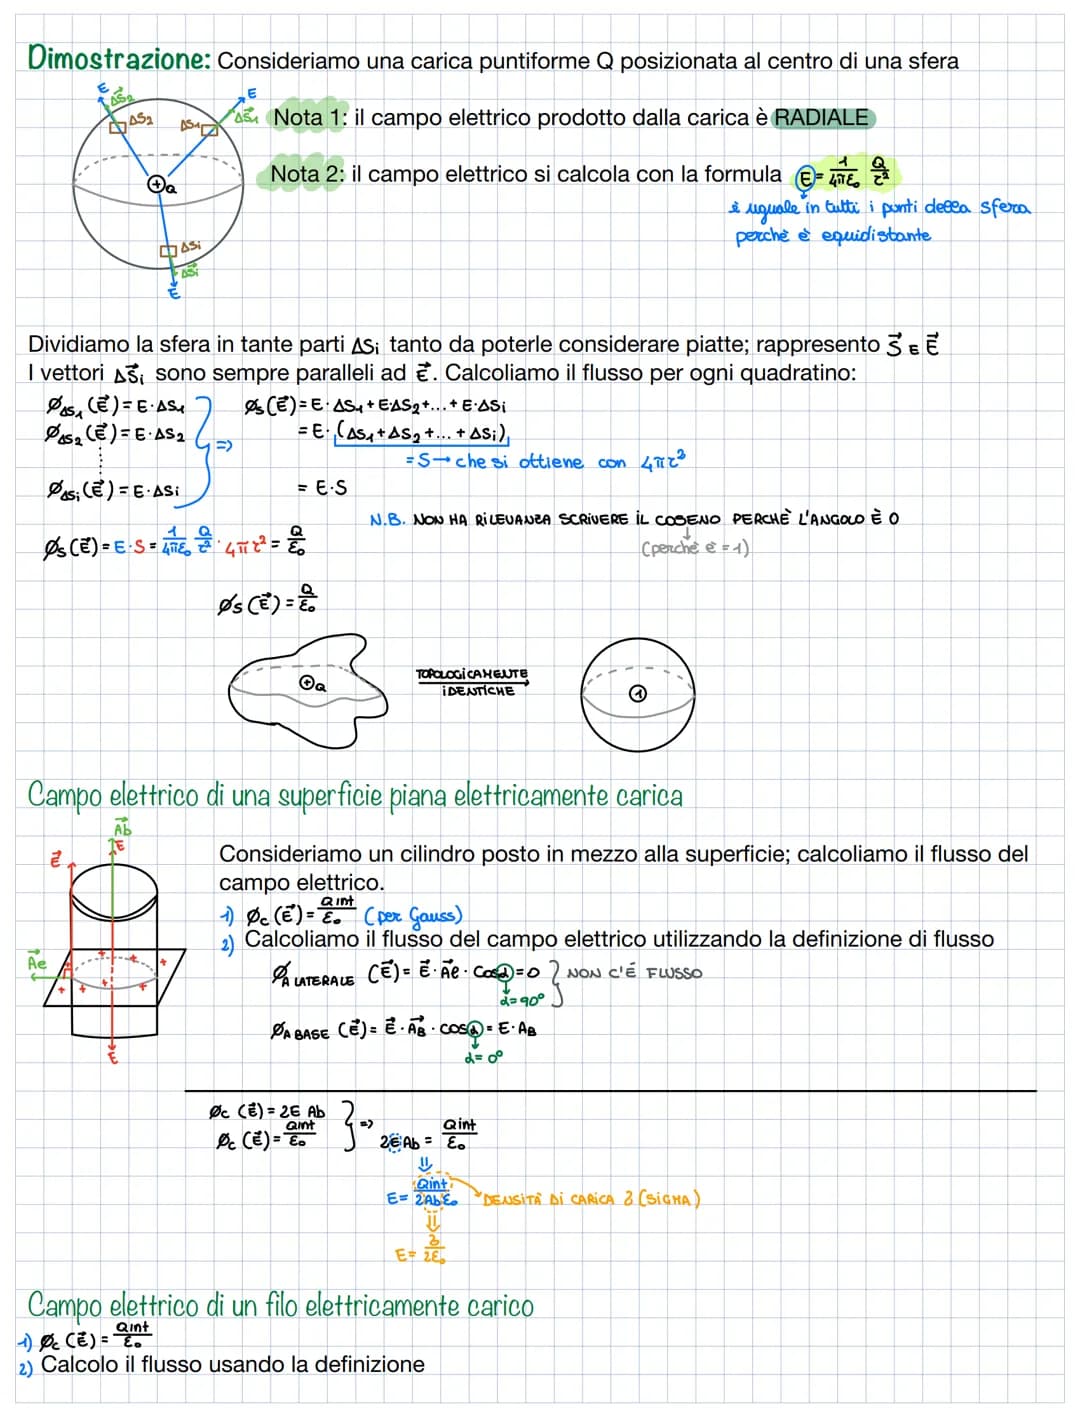 Dimostrazione: Consideriamo una carica puntiforme Q posizionata al centro di una sfera
E
ΔS⃗2
ΔS2
ΔS1
E
ΔS⃗1
Nota 1: il campo elettrico prodotto dalla carica è RADIALE
+Q
Nota 2: il campo elettrico si calcola con la formula E = 1/4πε₀ Q/r²
è uguale in tutti i punti della sfera
perchè è equidistante
ΔSi
ΔS⃗i
E
Dividiamo la sfera in tante parti ΔSi tanto da poterle considerare piatte; rappresento S⃗ E E⃗
I vettori ΔS⃗i sono sempre paralleli ad E⃗. Calcoliamo il flusso per ogni quadratino:
ØΔS1 (E⃗) = E·ΔS1
ØΔS2 (E⃗) = E·ΔS2
ØΔSi (E⃗) = E·ΔSi
=>
Øs (E⃗) = E·ΔS1 + EΔS2 + ... + E·ΔSi
= E·(ΔS1 + ΔS2 + ... + ΔSi)
= S → che si ottiene con 4πr²
= E·S
N.B. NON HA RILEVANZA SCRIVERE IL COSENO PERCHÈ L'ANGOLO È 0
(perchè è = 1)
Øs (E⃗) = E·S = 1/4πε₀ Q/r² · 4πr² = Q/ε₀
Øs (E⃗) = Q/ε₀
+Q
TOPOLOGICAMENTE
IDENTICHE
1
Campo elettrico di una superficie piana elettricamente carica
A⃗b
E
E⃗
A⃗e
+ + + + + + +
E
Consideriamo un cilindro posto in mezzo alla superficie; calcoliamo il flusso del
campo elettrico.
1) Øc (E⃗) = Qint/ε₀ (per Gauss)
2) Calcoliamo il flusso del campo elettrico utilizzando la definizione di flusso
ØA LATERALE (E⃗) = E⃗·A⃗e · cosα = 0 } NON C'É FLUSSO
α = 90°
ØA BASE (E⃗) = E⃗·A⃗B · cosα = E·AB
α = 0°
Øc (E⃗) = 2E Ab
Øc (E⃗) = Qint/ε₀
=> 2E Ab = Qint/ε₀
E = Qint/2Abε₀
DENSITÀ DI CARICA σ (SIGMA)
E = σ/2ε₀
Campo elettrico di un filo elettricamente carico
1) Øc (E⃗) = Qint/ε₀
2) Calcolo il flusso usando la definizione